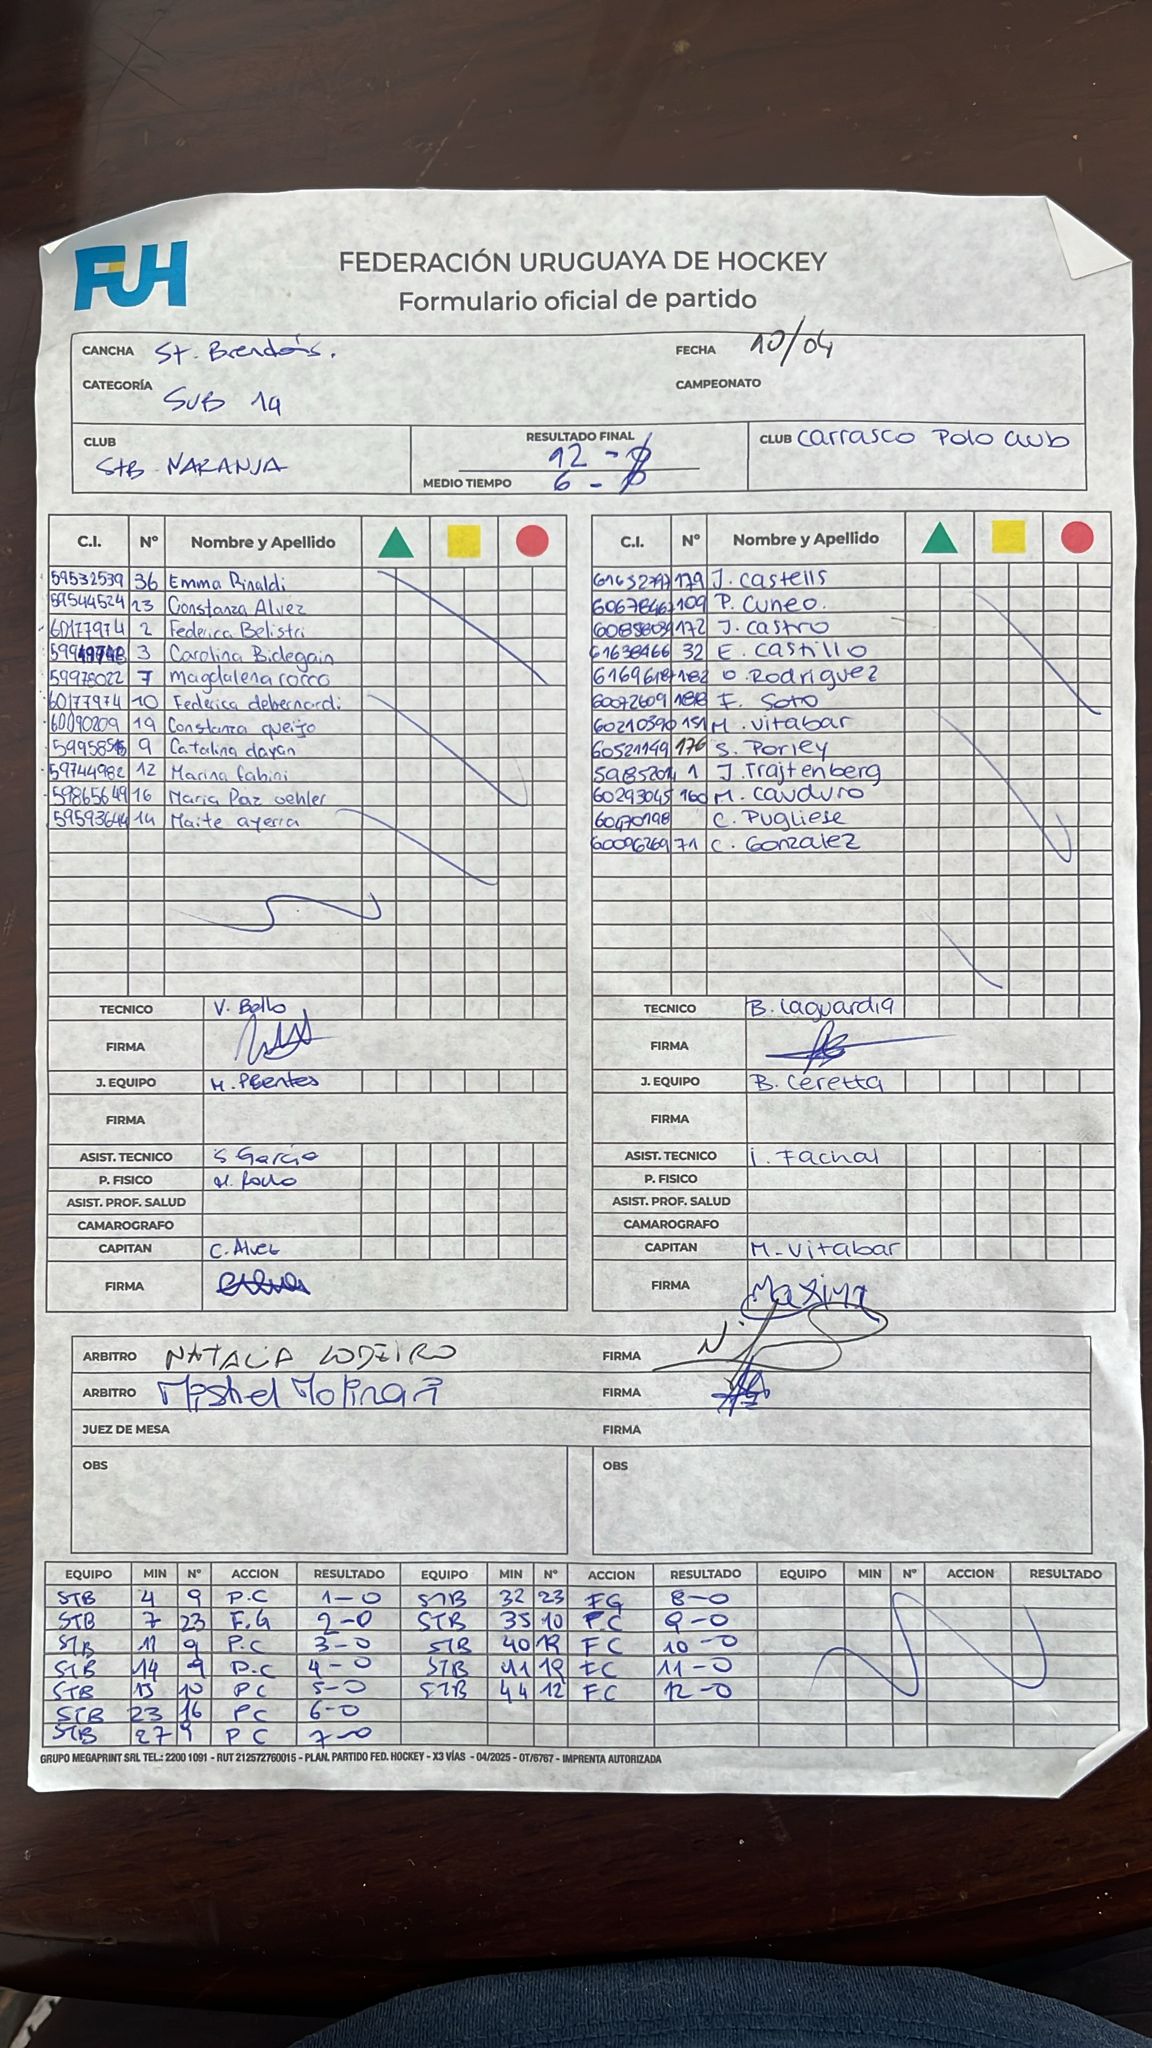 FUH
FEDERACIÓN URUGUAYA DE HOCKEY
Formulario oficial de partido
CANCHA St. Brendan's.
FECHA 10/04
CATEGORÍA SUB 14
CAMPEONATO
CLUB STB NARANJA
RESULTADO FINAL 12 - 0
MEDIO TIEMPO 6 - 0
CLUB Carrasco Polo Club
C.I. Nº Nombre y Apellido
59532539 36 Emma Rinaldi
59544524 23 Constanza Alvez
60177974 2 Federica Belistri
3 Carolina Bidegain
59978022 7 Magdalena rocco
60177974 10 Federica debernardi
60090209 19 Constanza queijo
9 Catalina dayan
59744982 12 Marina fabini
59865649 16 Maria Paz oehler
59593644 14 Maite ayerra
TECNICO V. Bello
FIRMA
J. EQUIPO M. Puentes
FIRMA
ASIST. TECNICO S Garcia
P. FISICO
ASIST. PROF. SALUD
CAMAROGRAFO
CAPITAN C. Alvez
FIRMA
C.I. Nº Nombre y Apellido
179 J. Castells
6067846 109 P. Cuneo.
172 J. Castro
61638466 32 E. Castillo
182 O. Rodriguez
60072609 188 F. Soto
60210390 151 M. Vitabar
60521149 176 S. Porley
1 J. Trajtenberg
60293045 160 M. Cauduro
60470198 C. Pugliese
60096269 71 C. Gonzalez
TECNICO B. Laguardia
FIRMA
J. EQUIPO B. Ceretta
FIRMA
ASIST. TECNICO I. Fachal
P. FISICO
ASIST. PROF. SALUD
CAMAROGRAFO
CAPITAN M. Vitabar
FIRMA
ARBITRO NATALIA LODEIRO FIRMA
ARBITRO Mishel Molinari FIRMA
JUEZ DE MESA FIRMA
OBS OBS
EQUIPO MIN Nº ACCION RESULTADO EQUIPO MIN Nº ACCION RESULTADO EQUIPO MIN Nº ACCION RESULTADO
STB 4 9 P.C 1-0 STB 32 23 FG 8-0
STB 7 23 F.G 2-0 STB 35 10 PC 9-0
STB 11 9 P.C 3-0 STB 40 19 FC 10-0
STB 14 9 P.C 4-0 STB 41 19 FC 11-0
STB 15 10 PC 5-0 STB 44 12 FC 12-0
STB 23 16 PC 6-0
STB 27 9 PC 7-0
GRUPO MEGAPRINT SRL TEL.: 2200 1091 - RUT 212572760015 - PLAN. PARTIDO FED. HOCKEY - X3 VÍAS - 04/2025 - OT/6767 - IMPRENTA AUTORIZADA